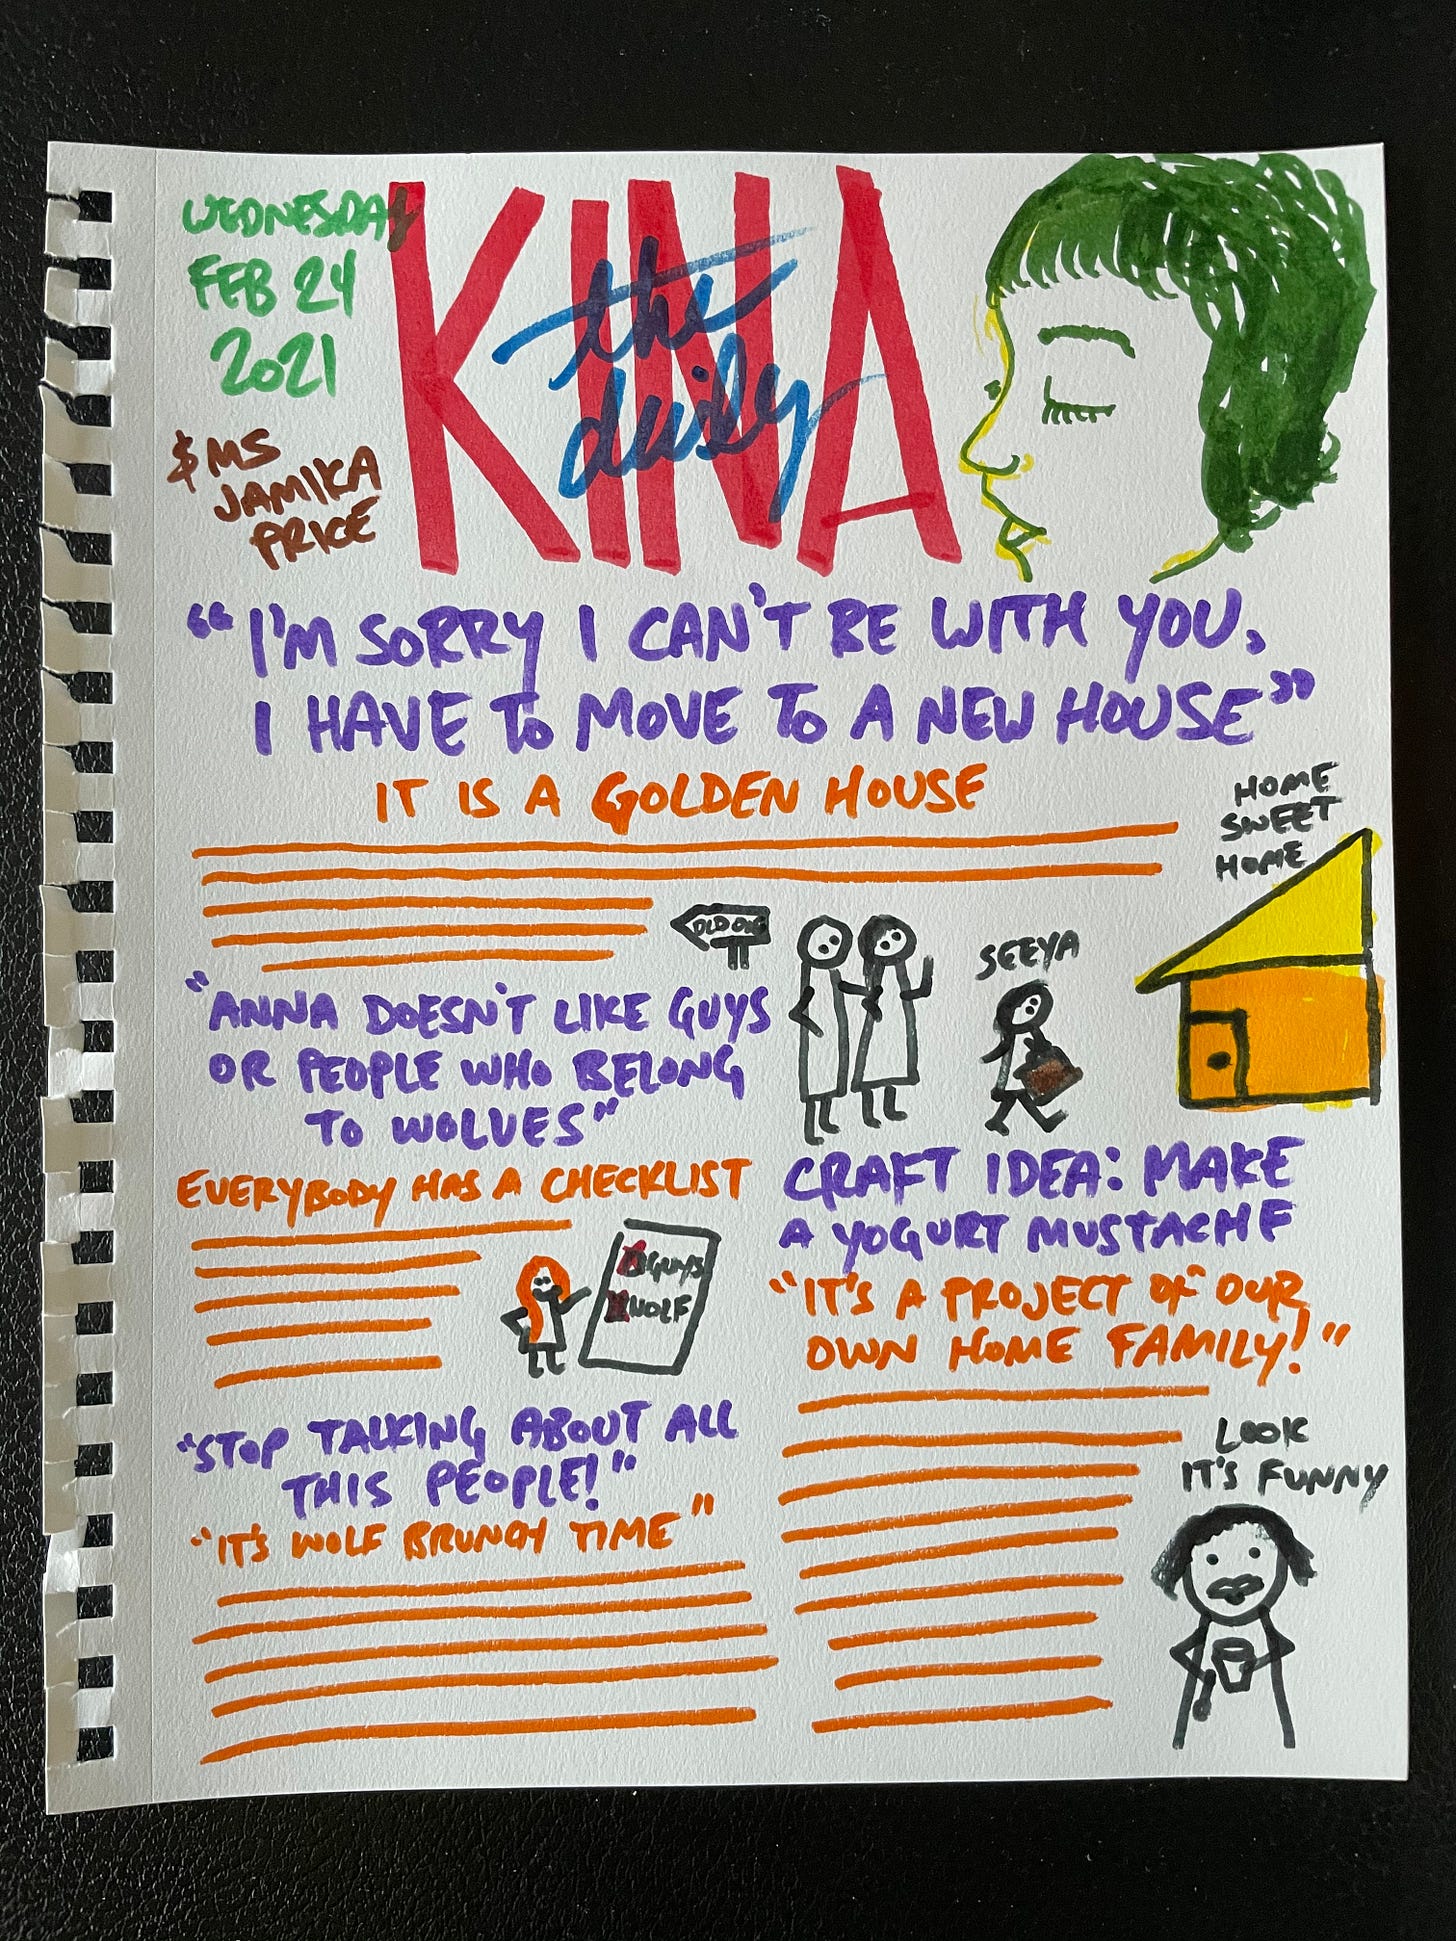 WEDNESDAY
FEB 24
2021
$ MS
JAMIKA
PRICE
KINA
the
daily
"I'M SORRY I CAN'T BE WITH YOU,
I HAVE TO MOVE TO A NEW HOUSE"
IT IS A GOLDEN HOUSE
HOME
SWEET
HOME
OLD ONE
SEEYA
"ANNA DOESN'T LIKE GUYS
OR PEOPLE WHO BELONG
TO WOLVES"
EVERYBODY HAS A CHECKLIST
GUYS
WOLF
"STOP TALKING ABOUT ALL
THIS PEOPLE!"
"IT'S WOLF BRUNCH TIME"
CRAFT IDEA: MAKE
A YOGURT MUSTACHE
"IT'S A PROJECT OF OUR
OWN HOME FAMILY!"
LOOK
IT'S FUNNY